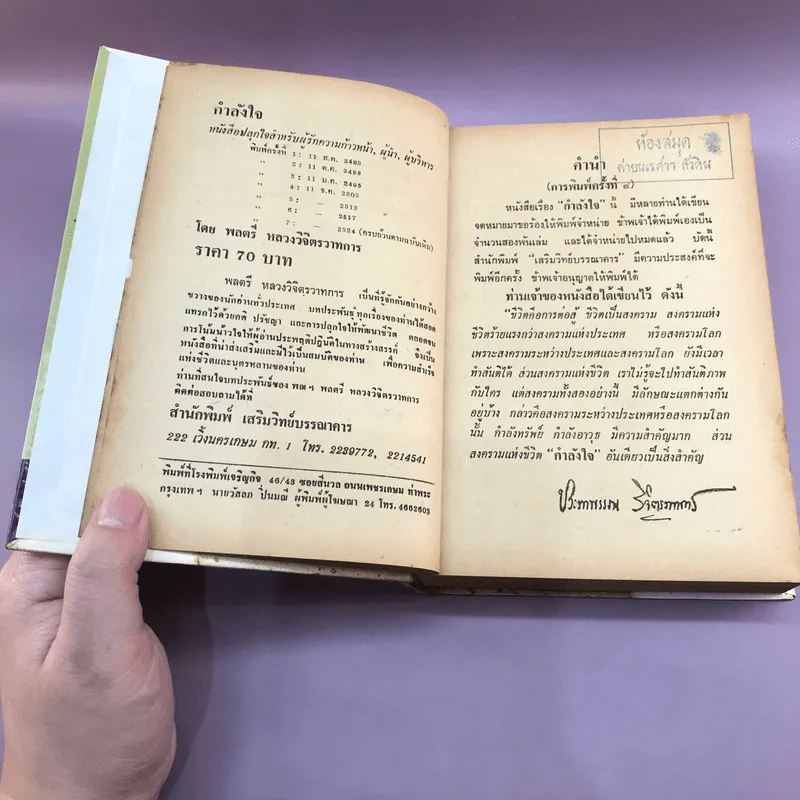 กำลังใจ
หนังสือปลุกใจสำหรับผู้รักความก้าวหน้า, ผู้นำ, ผู้บริหาร
พิมพ์ครั้งที่ 1: 11 ส.ค. 2493
,, 2: 11 ต.ค. 2494
,, 3: 11 ม.ค. 2495
,, 4: 11 ธ.ค. 2505
,, 5: — 2513
,, 6: — 2517
,, 7: — 2524 (ครบถ้วนตามฉบับเดิม)
โดย พลตรี หลวงวิจิตรวาทการ
ราคา 70 บาท
พลตรี หลวงวิจิตรวาทการ เป็นที่รู้จักกันอย่างกว้าง
ขวางของนักอ่านทั่วประเทศ บทประพันธ์ทุกเรื่องของท่านได้สอด
แทรกไว้ด้วยคติ ปรัชญา และการปลุกใจให้พัฒนาชีวิต ตลอดจน
การโน้มน้าวใจให้ผู้อ่านประพฤติปฏิบัติในทางสร้างสรรค์ จึงเป็น
หนังสือที่น่าส่งเสริมและมีไว้เป็นสมบัติของท่าน เพื่อความสำเร็จ
แห่งชีวิตและบุตรหลานของท่าน
ท่านที่สนใจบทประพันธ์ของ พณฯ พลตรี หลวงวิจิตรวาทการ
ติดต่อสอบถามได้ที่
สำนักพิมพ์ เสริมวิทย์บรรณาคาร
222 เวิ้งนครเกษม กท. 1 โทร. 2239772, 2214541
พิมพ์ที่โรงพิมพ์เจริญกิจ 46/43 ซอยสีนวล ถนนเพชรเกษม ท่าพระ
กรุงเทพฯ นายวัลลภ ปิ่นมณี ผู้พิมพ์ผู้โฆษณา 24 โทร. 4662603
ห้องสมุด
ค่ายนเรศวร
คำนำ
(การพิมพ์ครั้งที่ ๔)
หนังสือเรื่อง "กำลังใจ" นี้ มีหลายท่านได้เขียน
จดหมายมาขอร้องให้พิมพ์จำหน่าย ข้าพเจ้าได้พิมพ์เองเป็น
จำนวนสองพันเล่ม และได้จำหน่ายไปหมดแล้ว บัดนี้
สำนักพิมพ์ "เสริมวิทย์บรรณาคาร" มีความประสงค์ที่จะ
พิมพ์อีกครั้ง ข้าพเจ้าอนุญาตให้พิมพ์ได้
ท่านเจ้าของหนังสือได้เขียนไว้ ดังนี้
"ชีวิตคือการต่อสู้ ชีวิตเป็นสงคราม สงครามแห่ง
ชีวิตร้ายแรงกว่าสงครามแห่งประเทศ หรือสงครามโลก
เพราะสงครามระหว่างประเทศและสงครามโลก ยังมีเวลา
ทำสันติได้ ส่วนสงครามแห่งชีวิต เราไม่รู้จะไปทำสันติภาพ
กับใคร แต่สงครามทั้งสองอย่างนี้ มีลักษณะแตกต่างกัน
อยู่บ้าง กล่าวคือสงครามระหว่างประเทศหรือสงครามโลก
นั้น กำลังทรัพย์ กำลังอาวุธ มีความสำคัญมาก ส่วน
สงครามแห่งชีวิต "กำลังใจ" อันเดียวเป็นสิ่งสำคัญ
ประภาพรรณ วิจิตรวาทการ